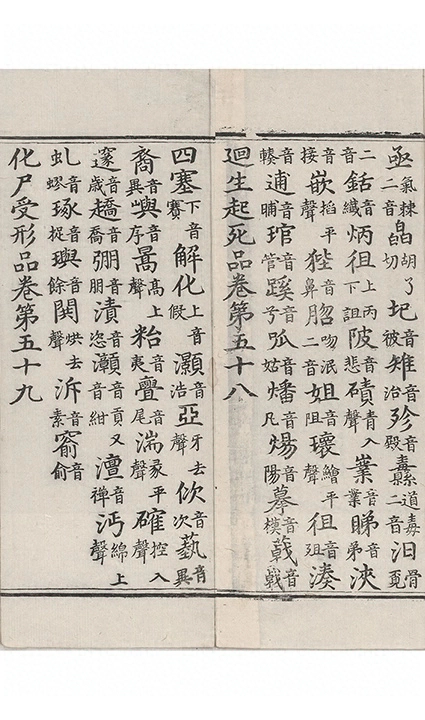 亟氣棘二音皛胡了切圯音被雉音治殄音殿纛道毒二音汨骨覔
二音銛音纖炳徂上丙下詛陂音悲磧青入聲嶪音業睇音弟浹音
接嵌掐平聲狴音鼻吻泯二音姐音阻瓌繪平聲徂音殂湊音
輳逋音晡琯音管蹊音兮孤音姑燔音凡煬音陽摹音模戟音
廻生起死品卷第五十八
四塞下音賽解化上音假灝音浩亞牙去聲佽音次蓺音異
裔音異嶼音序暠高上聲音夷亹音尾湍彖平聲確控入聲
邃音歲趫音喬弸音朋漬音恣灨音貢又音紺澶音禪沔綿上聲
虬音蟉琢音捉璵音餘閧烘去聲泝音素窬音俞
化尸受形品卷第五十九